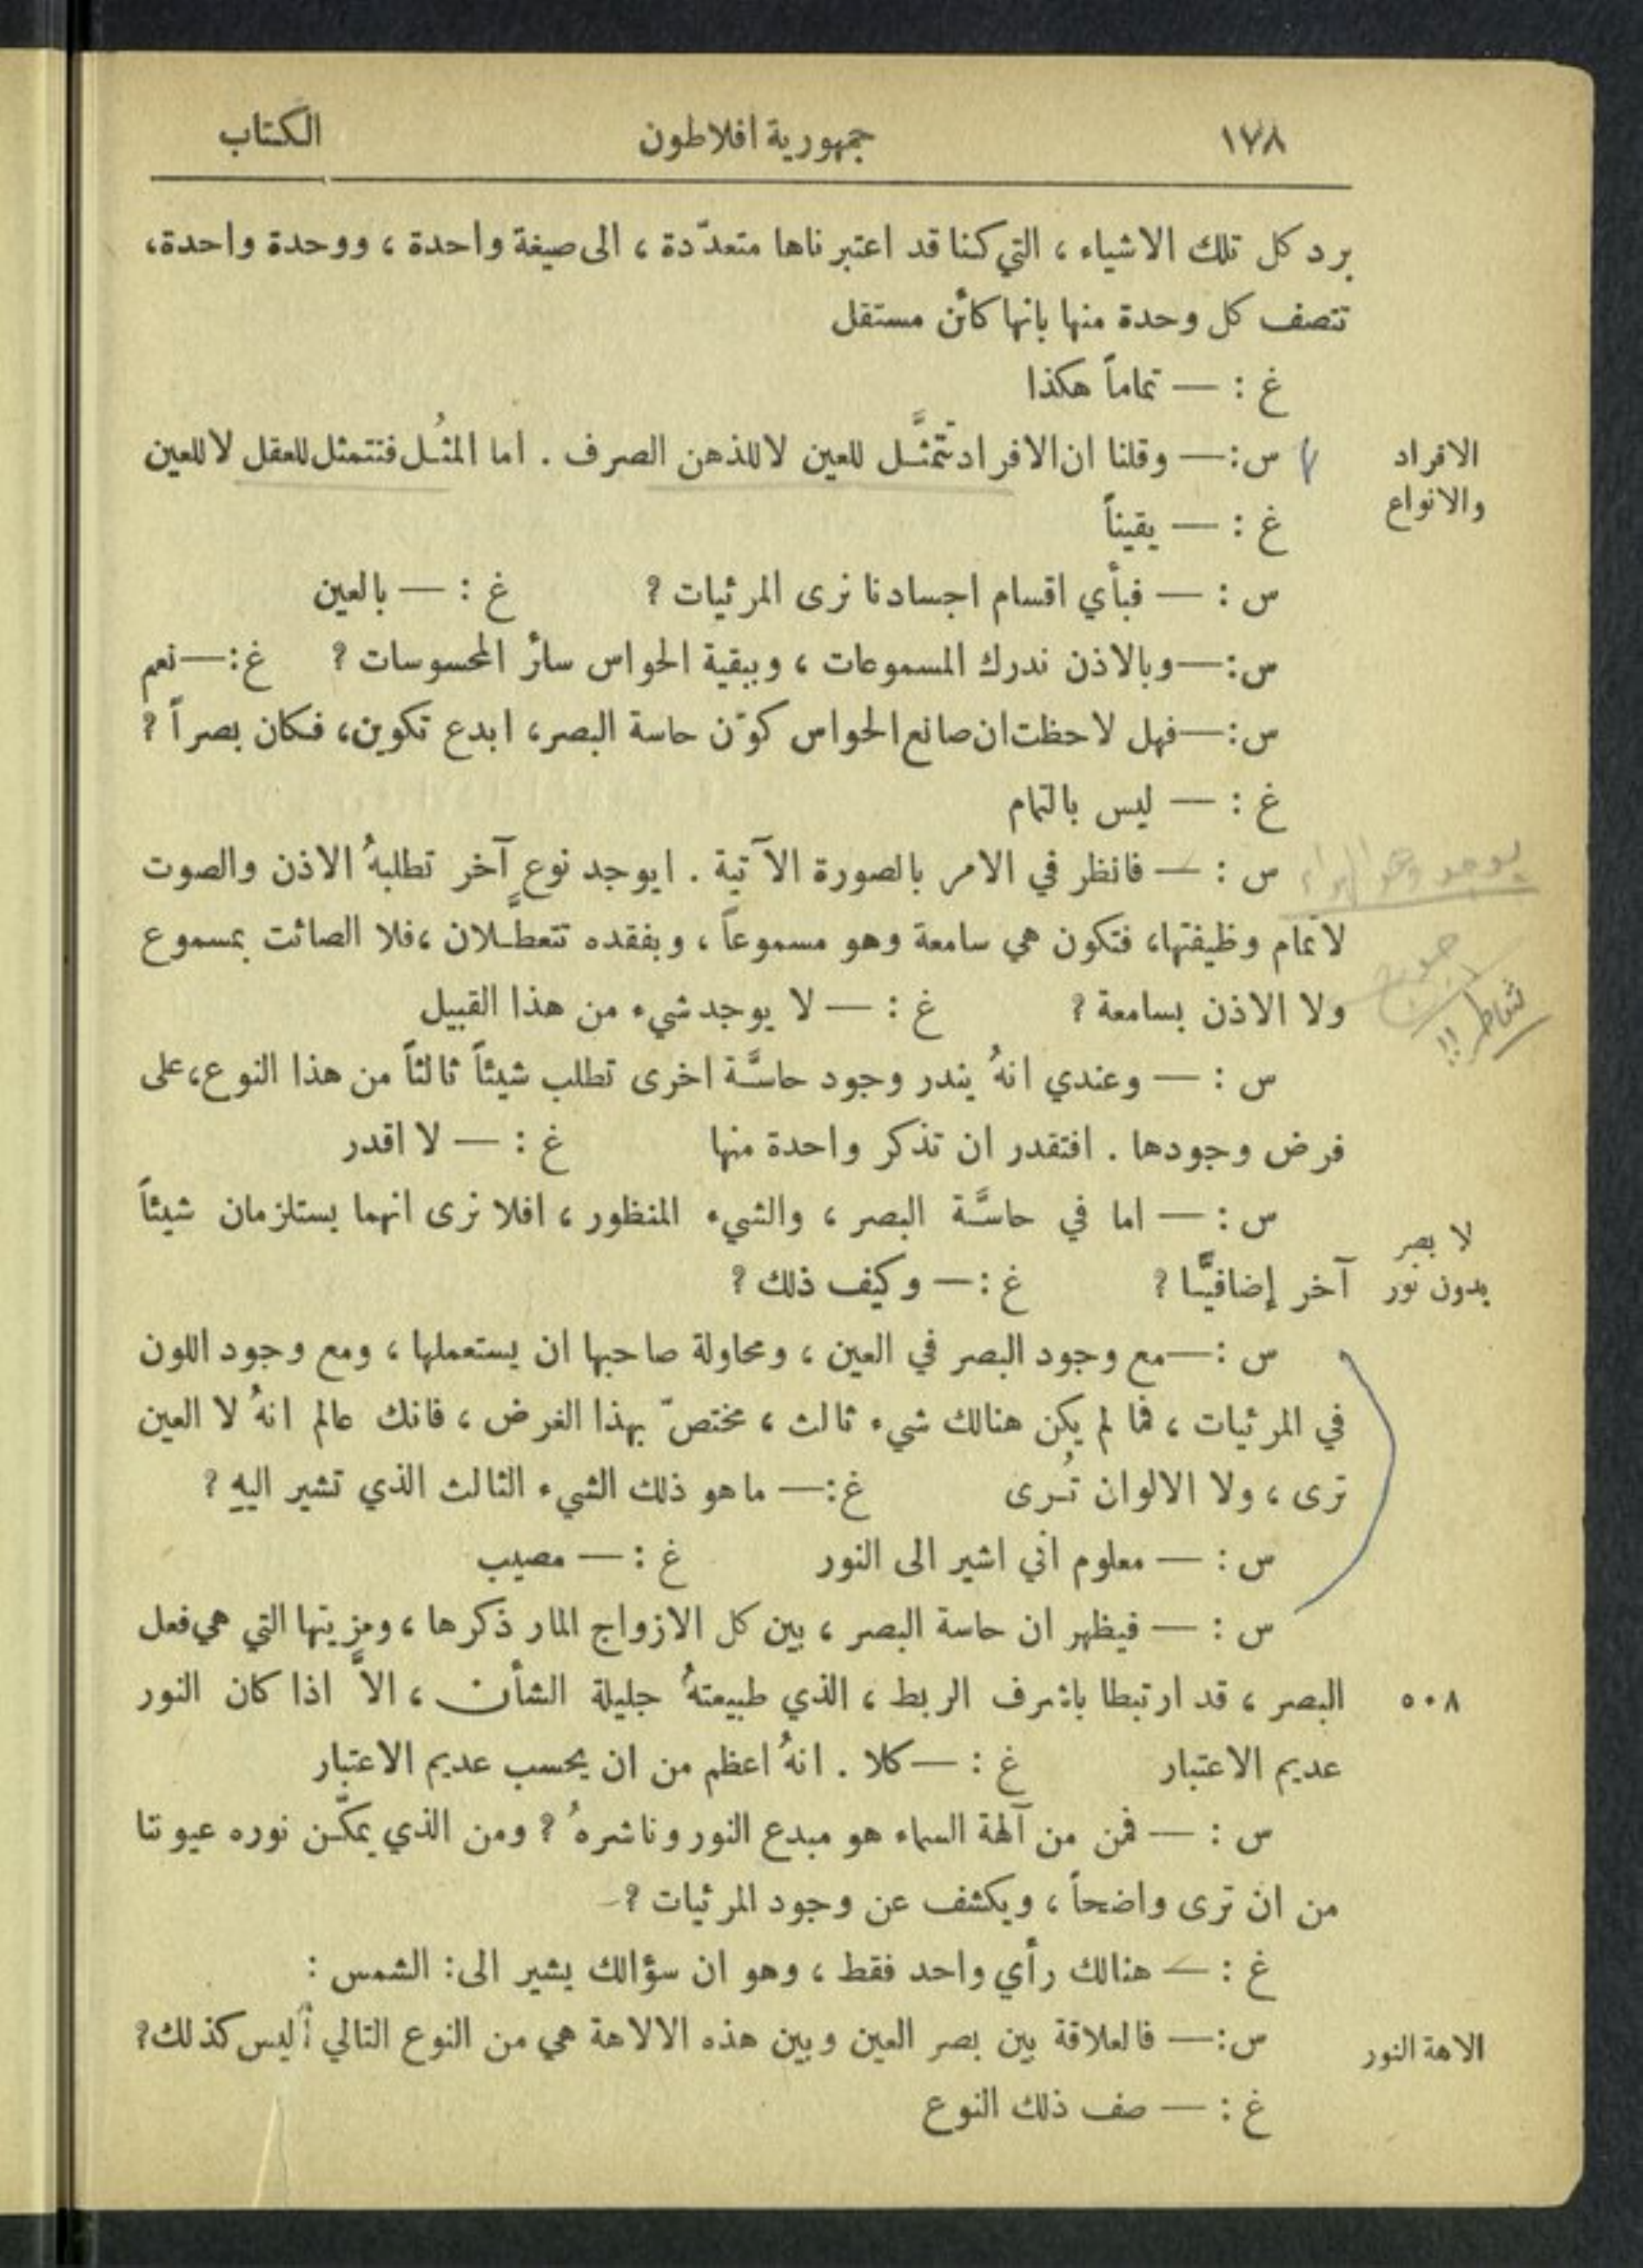 ١٧٨ جمهورية افلاطون الكتاب
برد كل تلك الاشياء ، التي كنا قد اعتبرناها متعدّدة ، الى صيغة واحدة ، ووحدة واحدة،
تتصف كل وحدة منها بانها كائن مستقل
غ : — تماماً هكذا
الافراد
والانواع
س:— وقلنا ان الافراد تتمثَّل للعين لا للذهن الصرف . اما المثُل فتتمثل للعقل لا للعين
غ : — يقيناً
س : — فبأي اقسام اجسادنا نرى المرئيات ? غ : — بالعين
س:—وبالاذن ندرك المسموعات ، وببقية الحواس سائر المحسوسات ? غ:—نعم
س:—فهل لاحظت ان صانع الحواس كوّن حاسة البصر، ابدع تكوين، فكان بصراً ?
غ : — ليس بالتمام
يوجد وهو الهواء
س : — فانظر في الامر بالصورة الآتية . ايوجد نوعٍ آخر تطلبهُ الاذن والصوت
لاتمام وظيفتها، فتكون هي سامعة وهو مسموعاً ، وبفقده تتعطَّلان ،فلا الصائت بمسموع
شاطر !!
ولا الاذن بسامعة ? غ : — لا يوجد شيء من هذا القبيل
س : — وعندي انهُ يندر وجود حاسَّة اخرى تطلب شيئاً ثالثاً من هذا النوع،على
فرض وجودها . افتقدر ان تذكر واحدة منها غ : — لا اقدر
س : — اما في حاسَّة البصر ، والشيء المنظور ، افلا نرى انهما يستلزمان شيئاً
لا بصر
بدون نور
آخر إضافيًّا ? غ :— وكيف ذلك ?
س :—مع وجود البصر في العين ، ومحاولة صاحبها ان يستعملها ، ومع وجود اللون
في المرئيات ، فما لم يكن هنالك شيء ثالث ، مختصّ بهذا الغرض ، فانك عالم انهُ لا العين
ترى ، ولا الالوان تُرى غ:— ماهو ذلك الشيء الثالث الذي تشير اليهِ ?
س : — معلوم اني اشير الى النور غ :— مصيب
س : — فيظهر ان حاسة البصر ، بين كل الازواج المار ذكرها ، ومزيتها التي هي فعل
٥٠٨ البصر ، قد ارتبطا باشرف الربط ، الذي طبيعتهُ جليلة الشأن ، الاَّ اذا كان النور
عديم الاعتبار غ : —كلا . انهُ اعظم من ان يحسب عديم الاعتبار
س : — فمن من آلهة السماء هو مبدع النور وناشرهُ ? ومن الذي يمكّن نوره عيوننا
من ان ترى واضحاً ، ويكشف عن وجود المرئيات ?
غ : — هنالك رأي واحد فقط ، وهو ان سؤالك يشير الى: الشمس :
الاهة النور س:— فالعلاقة بين بصر العين وبين هذه الالاهة هي من النوع التالي أليس كذلك?
غ : — صف ذلك النوع